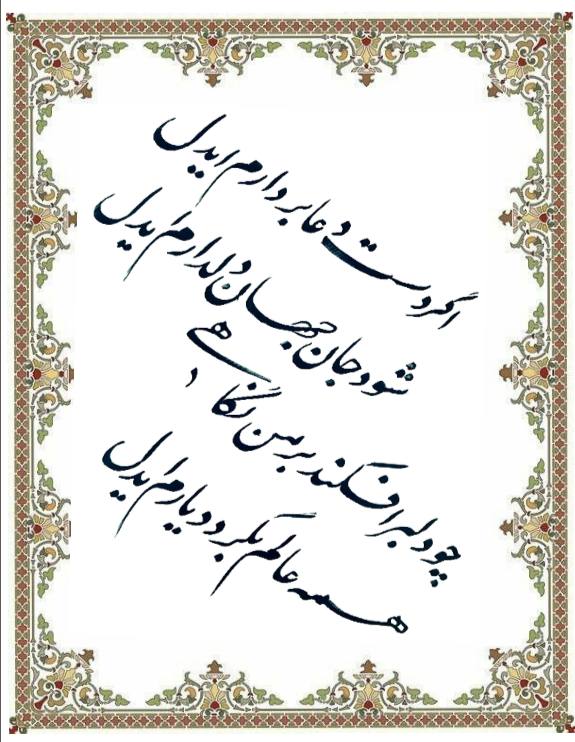 اگر دست دعا بر دارم ایدل
شود جان جهان دلدارم ایدل
چو دلبر افکند بر من نگاهی
همه عالم بگردد یارم ایدل